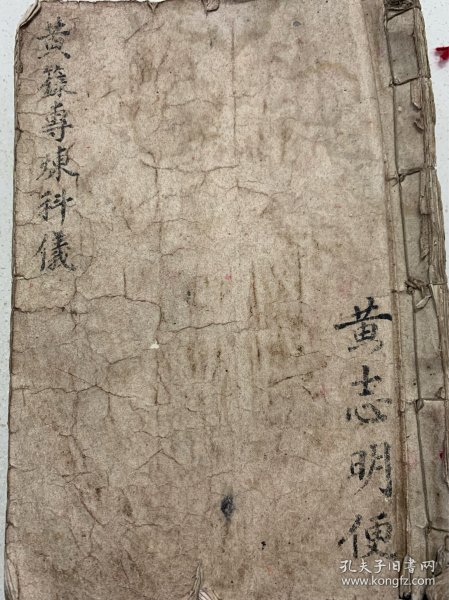 黄籙專煉科儀
黄志明便
孔夫子旧书网
www.kongfz.com